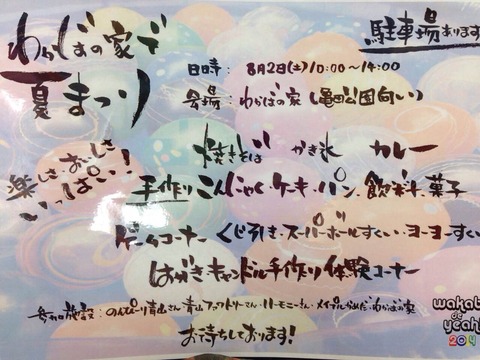 わかばの家で
夏まつり
駐車場あります
日時：8月2日(土)10:00～14:00
会場：わかばの家（亀田公園向い）
楽しさ、おいしさ
いっぱい！
焼きそば　かき氷　カレー
手作りこんにゃく・ケーキ・パン、飲料、菓子
ゲームコーナー　くじ引き・スーパーボールすくい・ヨーヨーすくい
はがきキャンドル手作り体験コーナー
参加施設：のんぴーり青山さん・青山ファクトリーさん・ハーモニーさん・メイプルかめだ・わかばの家
お待ちしております！
wakaba
de
yeah!
2014